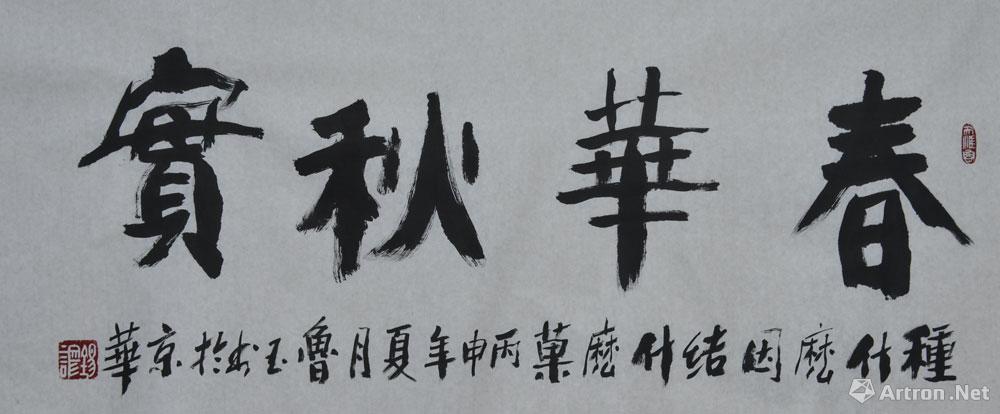 春華秋實
種什麼因結什麼菓丙申年夏月魯玉书於京華
Artron.Net